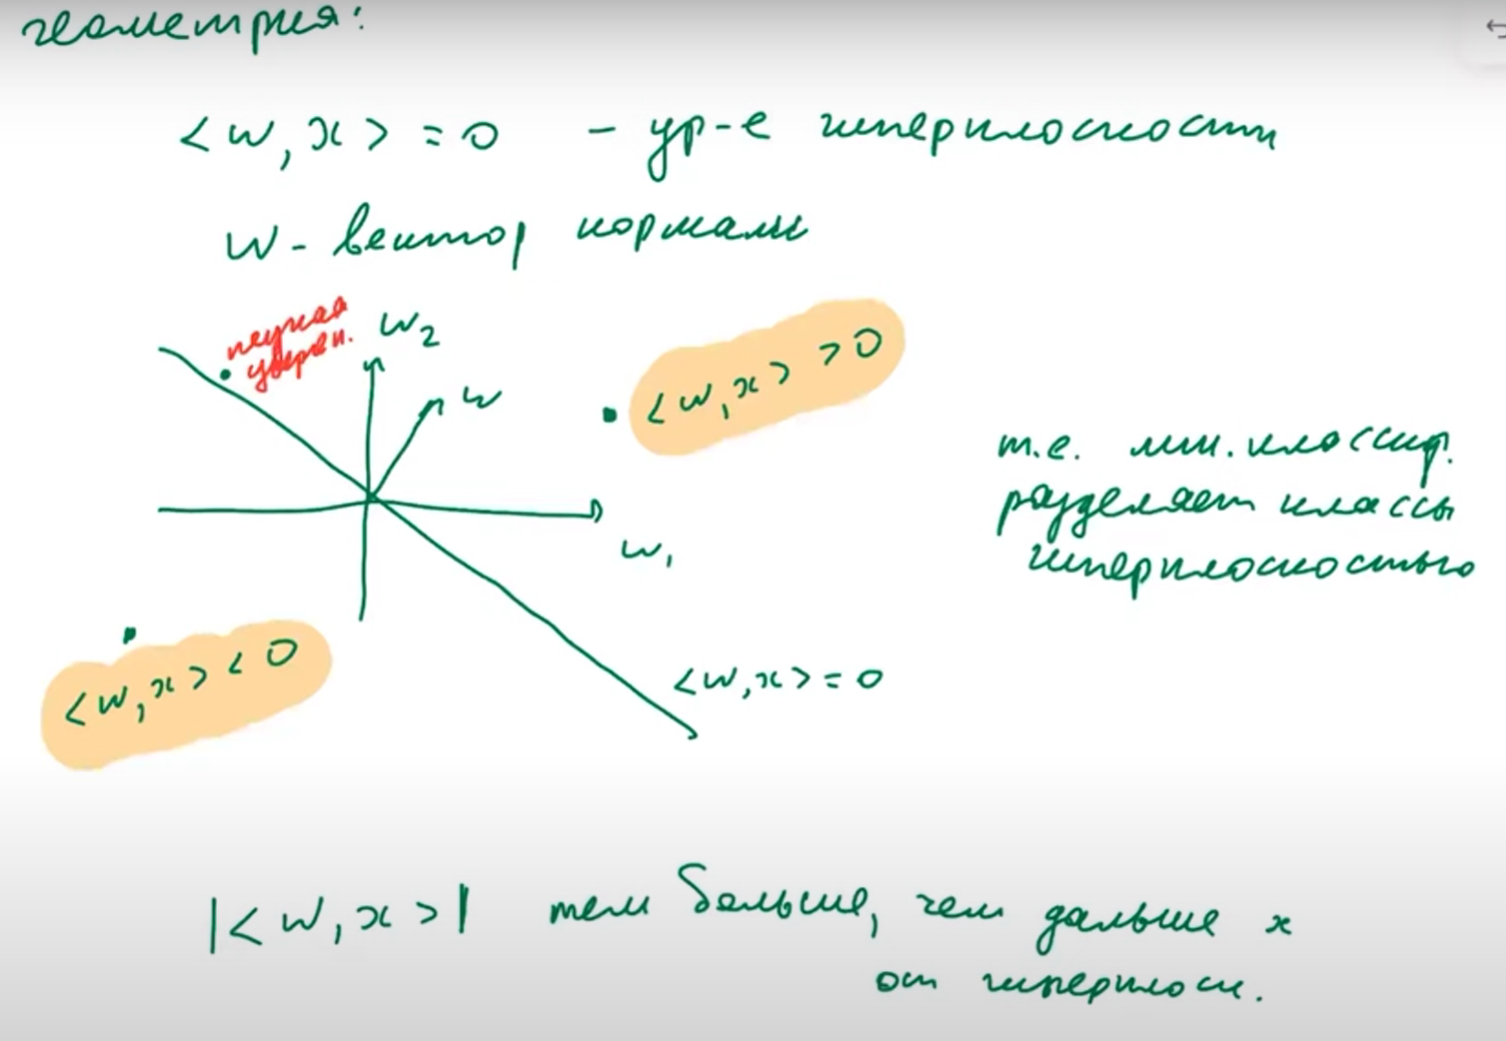 геометрия:
<w, x> = 0 - ур-е гиперплоскости
w - вектор нормали
w₂
<w, x> > 0
w
т.е. лин. классиф.
разделяет классы
гиперплоскостью
w₁
<w, x> < 0
<w, x> = 0
|<w, x>| тем больше, чем дальше x
от гиперплоск.